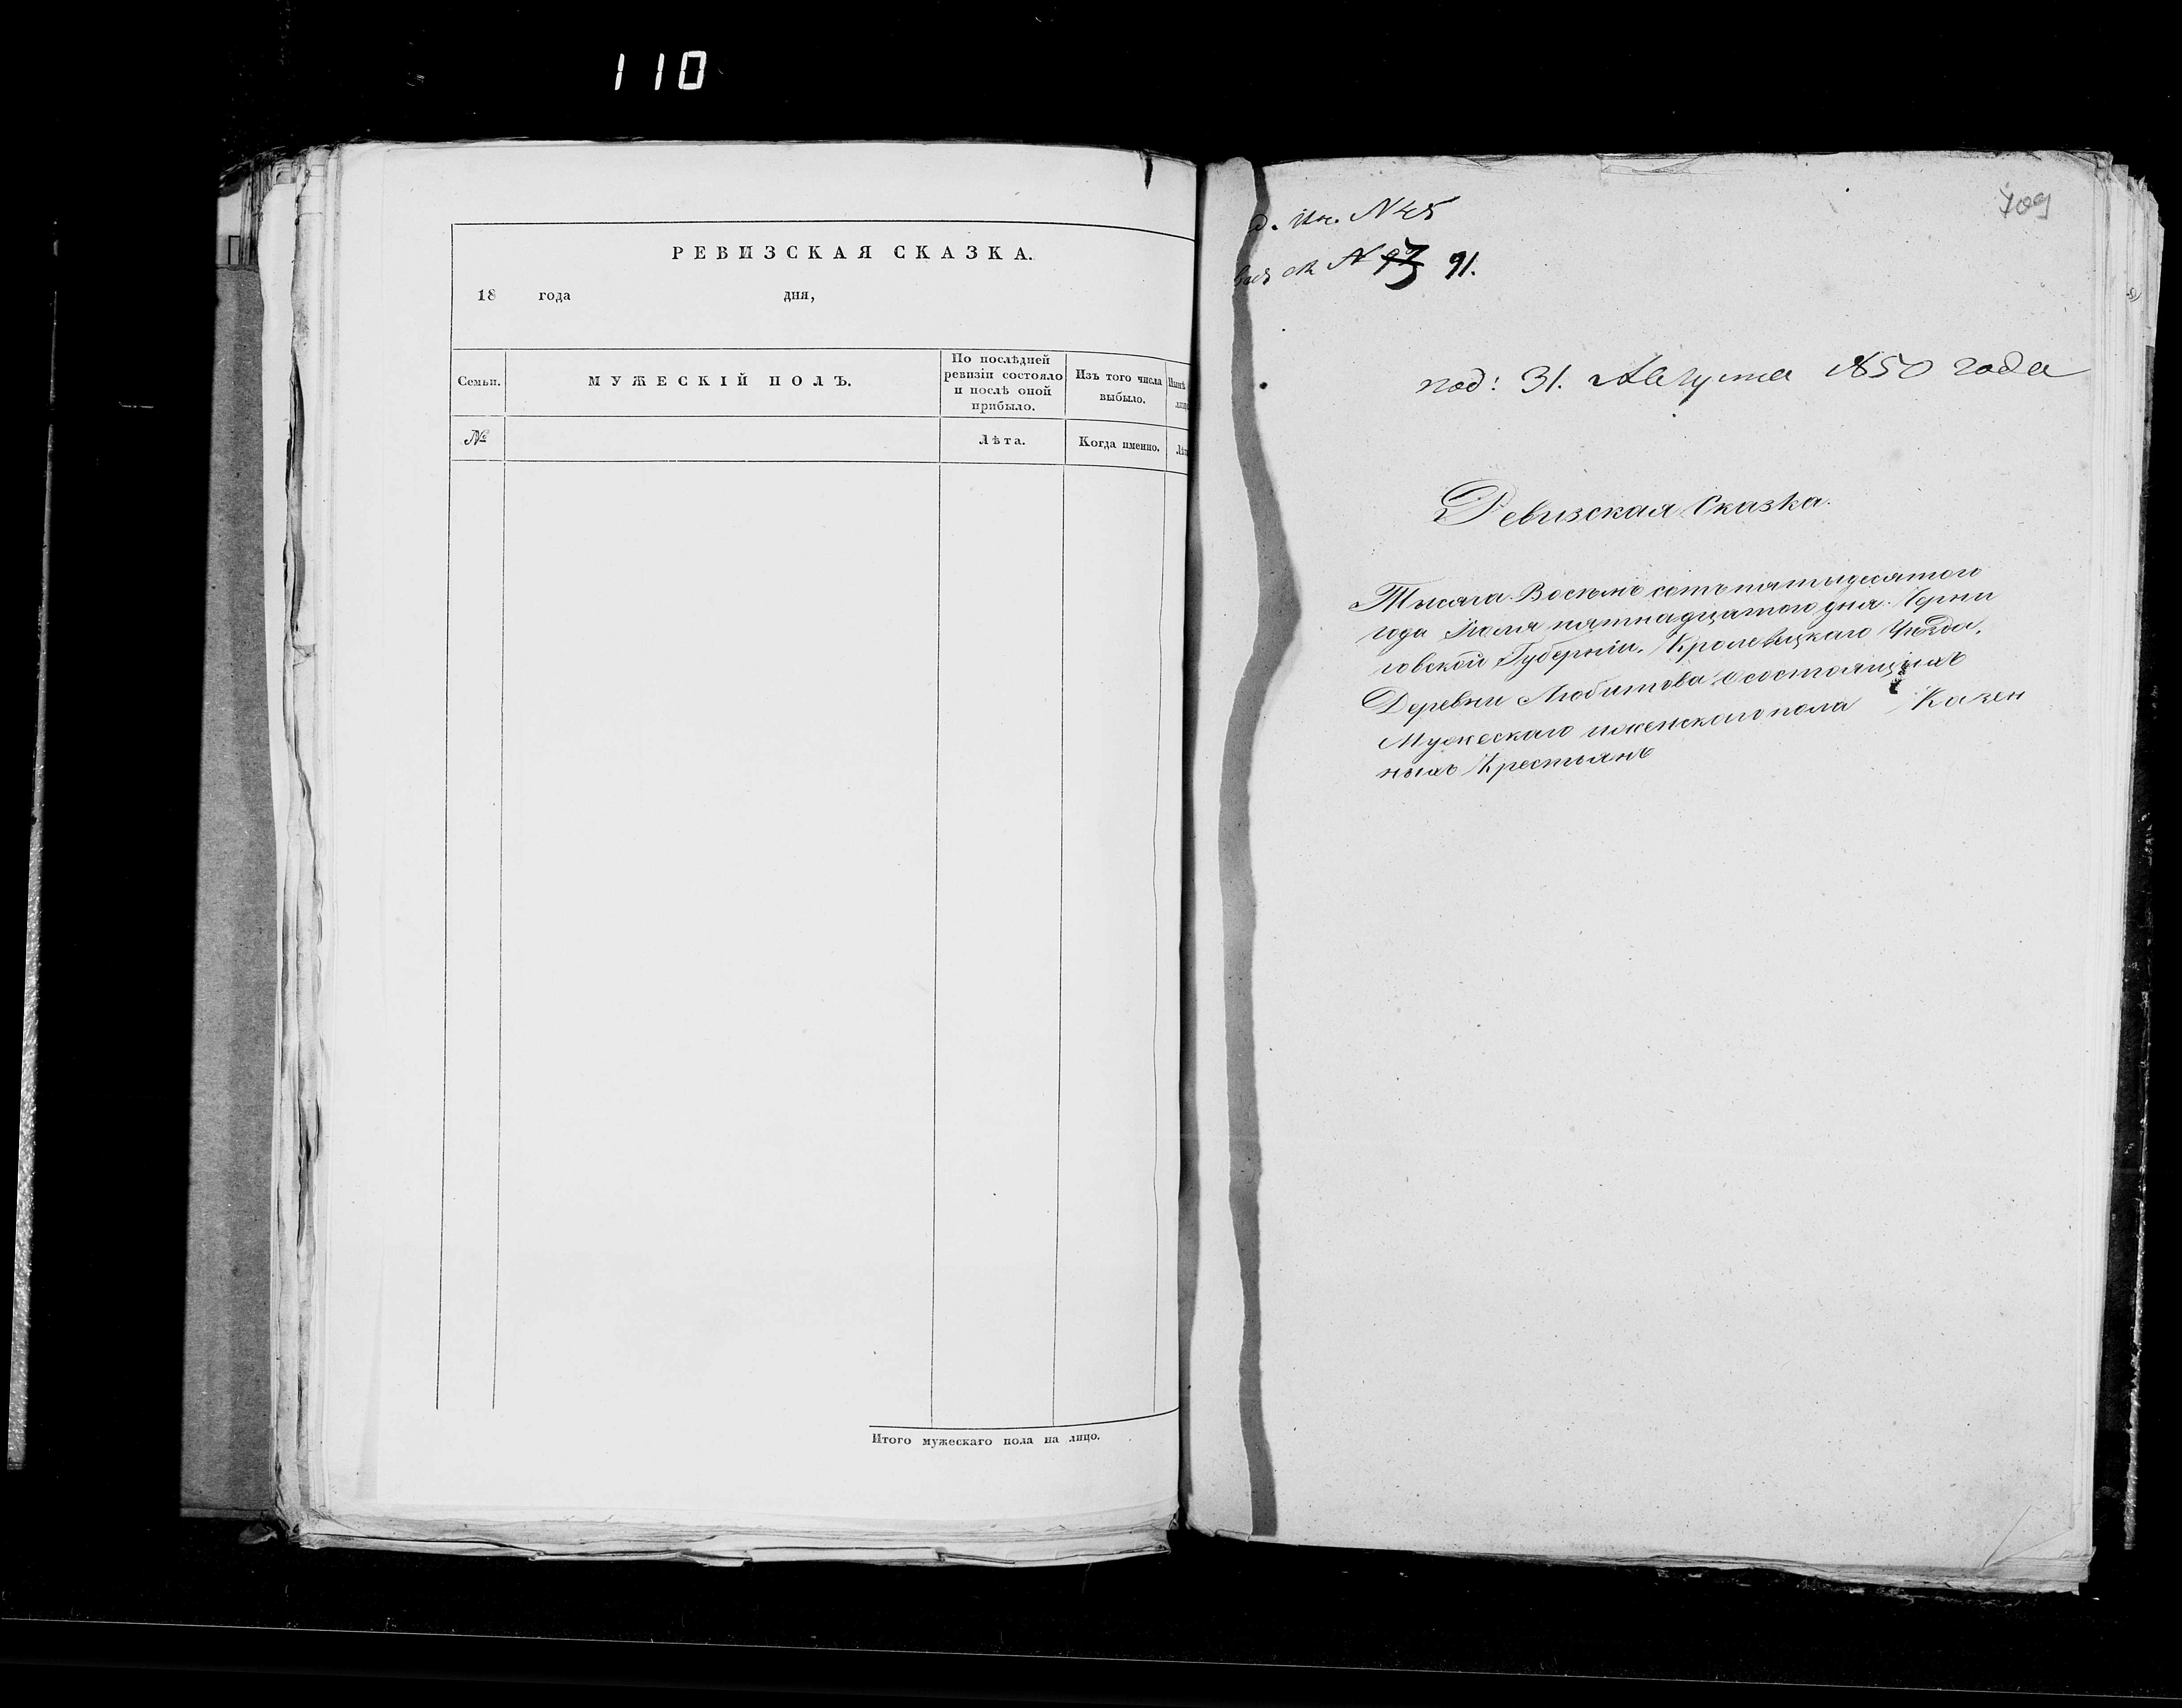 110
РЕВИЗСКАЯ СКАЗКА.
18 года дня,
Семьи.
МУЖЕСКІЙ ПОЛЪ.
По послѣдней
ревизіи состояло
и послѣ оной
прибыло.
Изъ того числа
выбыло.
№
Лѣта.
Когда именно.
Итого мужескаго пола на лицо.
709
д. Ин. N 45
N 91.
под: 31. Августа 1850 года
Ревизская Сказка.
Тысяча Восемьсотъ пятьдесятого
года Іюля пятнадцатого дня. Черни
говской Губерніи, Кролевицкаго Уѣзда,
Деревни Любитова О состоящихъ
Мужескаго и женскаго пола Казен
ныхъ Крестьянъ